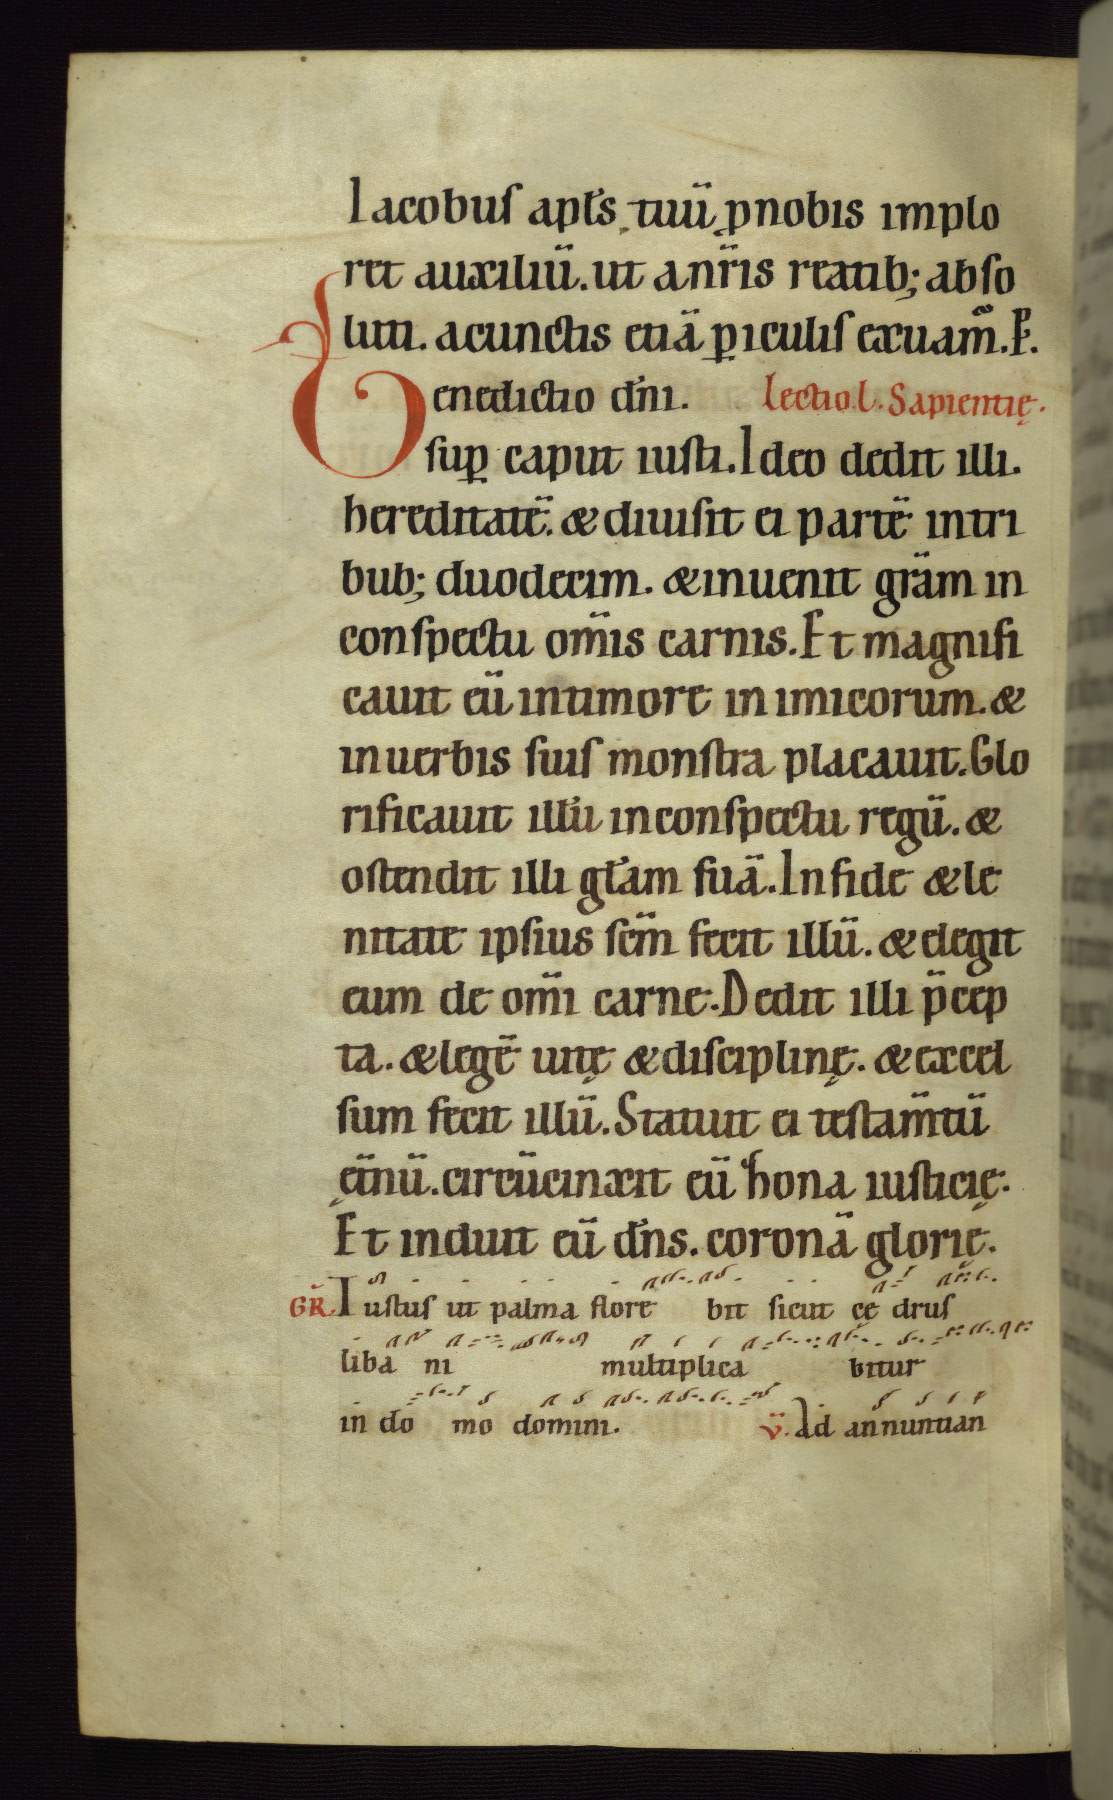 Iacobus apl's tuū ꝓnobis implo
ret auxiliū. ut anr̄is reatib; abso
luti. acunctis etiā ꝑiculis exuam̄. P.
Benedictio dn̄i. Lectio l. Sapientię.
suꝑ caput iusti. Ideo dedit illi.
hereditatē. & diuisit ei partē intri
bub; duodecim. & inuenit grām in
conspectu om̄is carnis. Et magnifi
cauit eū intimore in imicorum. &
inuerbis suis monstra placauit. Glo
rificauit illū inconspectu regū. &
ostendit illi gl'am suā. Infide & le
nitate ipsius scm̄ fecit illū. & elegit
eum de om̄i carne. Dedit illi p̄cep
ta. & legē uitę & disciplinę. & excel
sum fecit illū. Statuit ei testam̄tū
ęt̄nū. circūcinxit eū hona iusticię.
Et induit eū dn̄s. coronā glorię.
GR̄. Iustus ut palma flore bit sicut cę drus
liba ni multiplica bitur
in do mo domini. v̄. Ad annuntian